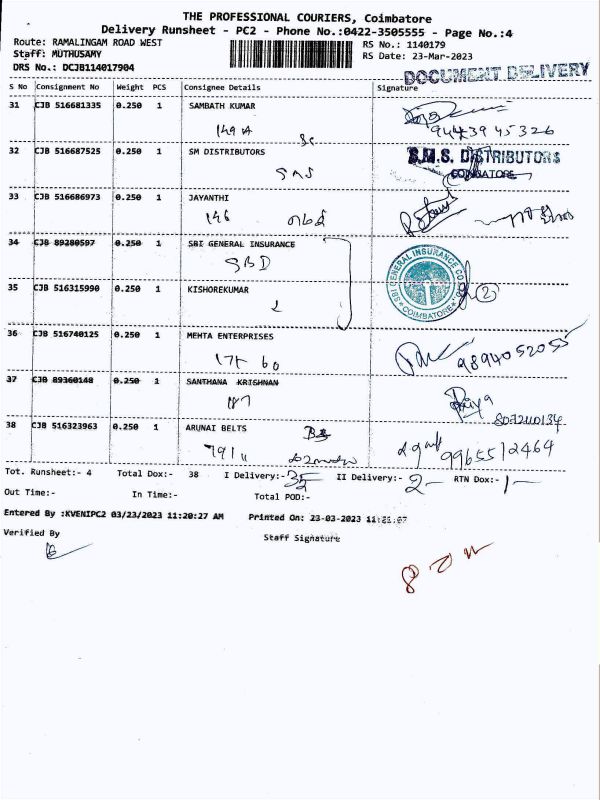 THE PROFESSIONAL COURIERS, Coimbatore
Delivery Runsheet - PC2 - Phone No.:0422-3505555 - Page No.:4
Route: RAMALINGAM ROAD WEST
RS No.: 1140179
Staff: MUTHUSAMY
RS Date: 23-Mar-2023
DRS No.: DCJB114017904
DOCUMENT DELIVERY
S No Consignment No Weight PCS Consignee Details Signature
31 CJB 516681335 0.250 1 SAMBATH KUMAR
149 A
9443945326
32 CJB 516687525 0.250 1 SM DISTRIBUTORS
S.M.S. DISTRIBUTORS
COIMBATORE
33 CJB 516686973 0.250 1 JAYANTHI
146
34 CJB 89280597 0.250 1 SBI GENERAL INSURANCE
SBD
SBI GENERAL INSURANCE CO
COIMBATORE
35 CJB 516315990 0.250 1 KISHOREKUMAR
(2)
36 CJB 516740125 0.250 1 MEHTA ENTERPRISES
60
9894052055
37 CJB 89360148 0.250 1 SANTHANA KRISHNAN
187
Priya
8072110134
38 CJB 516323963 0.250 1 ARUNAI BELTS
791
9965512464
Tot. Runsheet:- 4 Total Dox:- 38 I Delivery:- 35 II Delivery:- 2 RTN Dox:- 1
Out Time:- In Time:- Total POD:-
Entered By :KVENIPC2 03/23/2023 11:20:27 AM Printed On: 23-03-2023
Verified By
Staff Signature